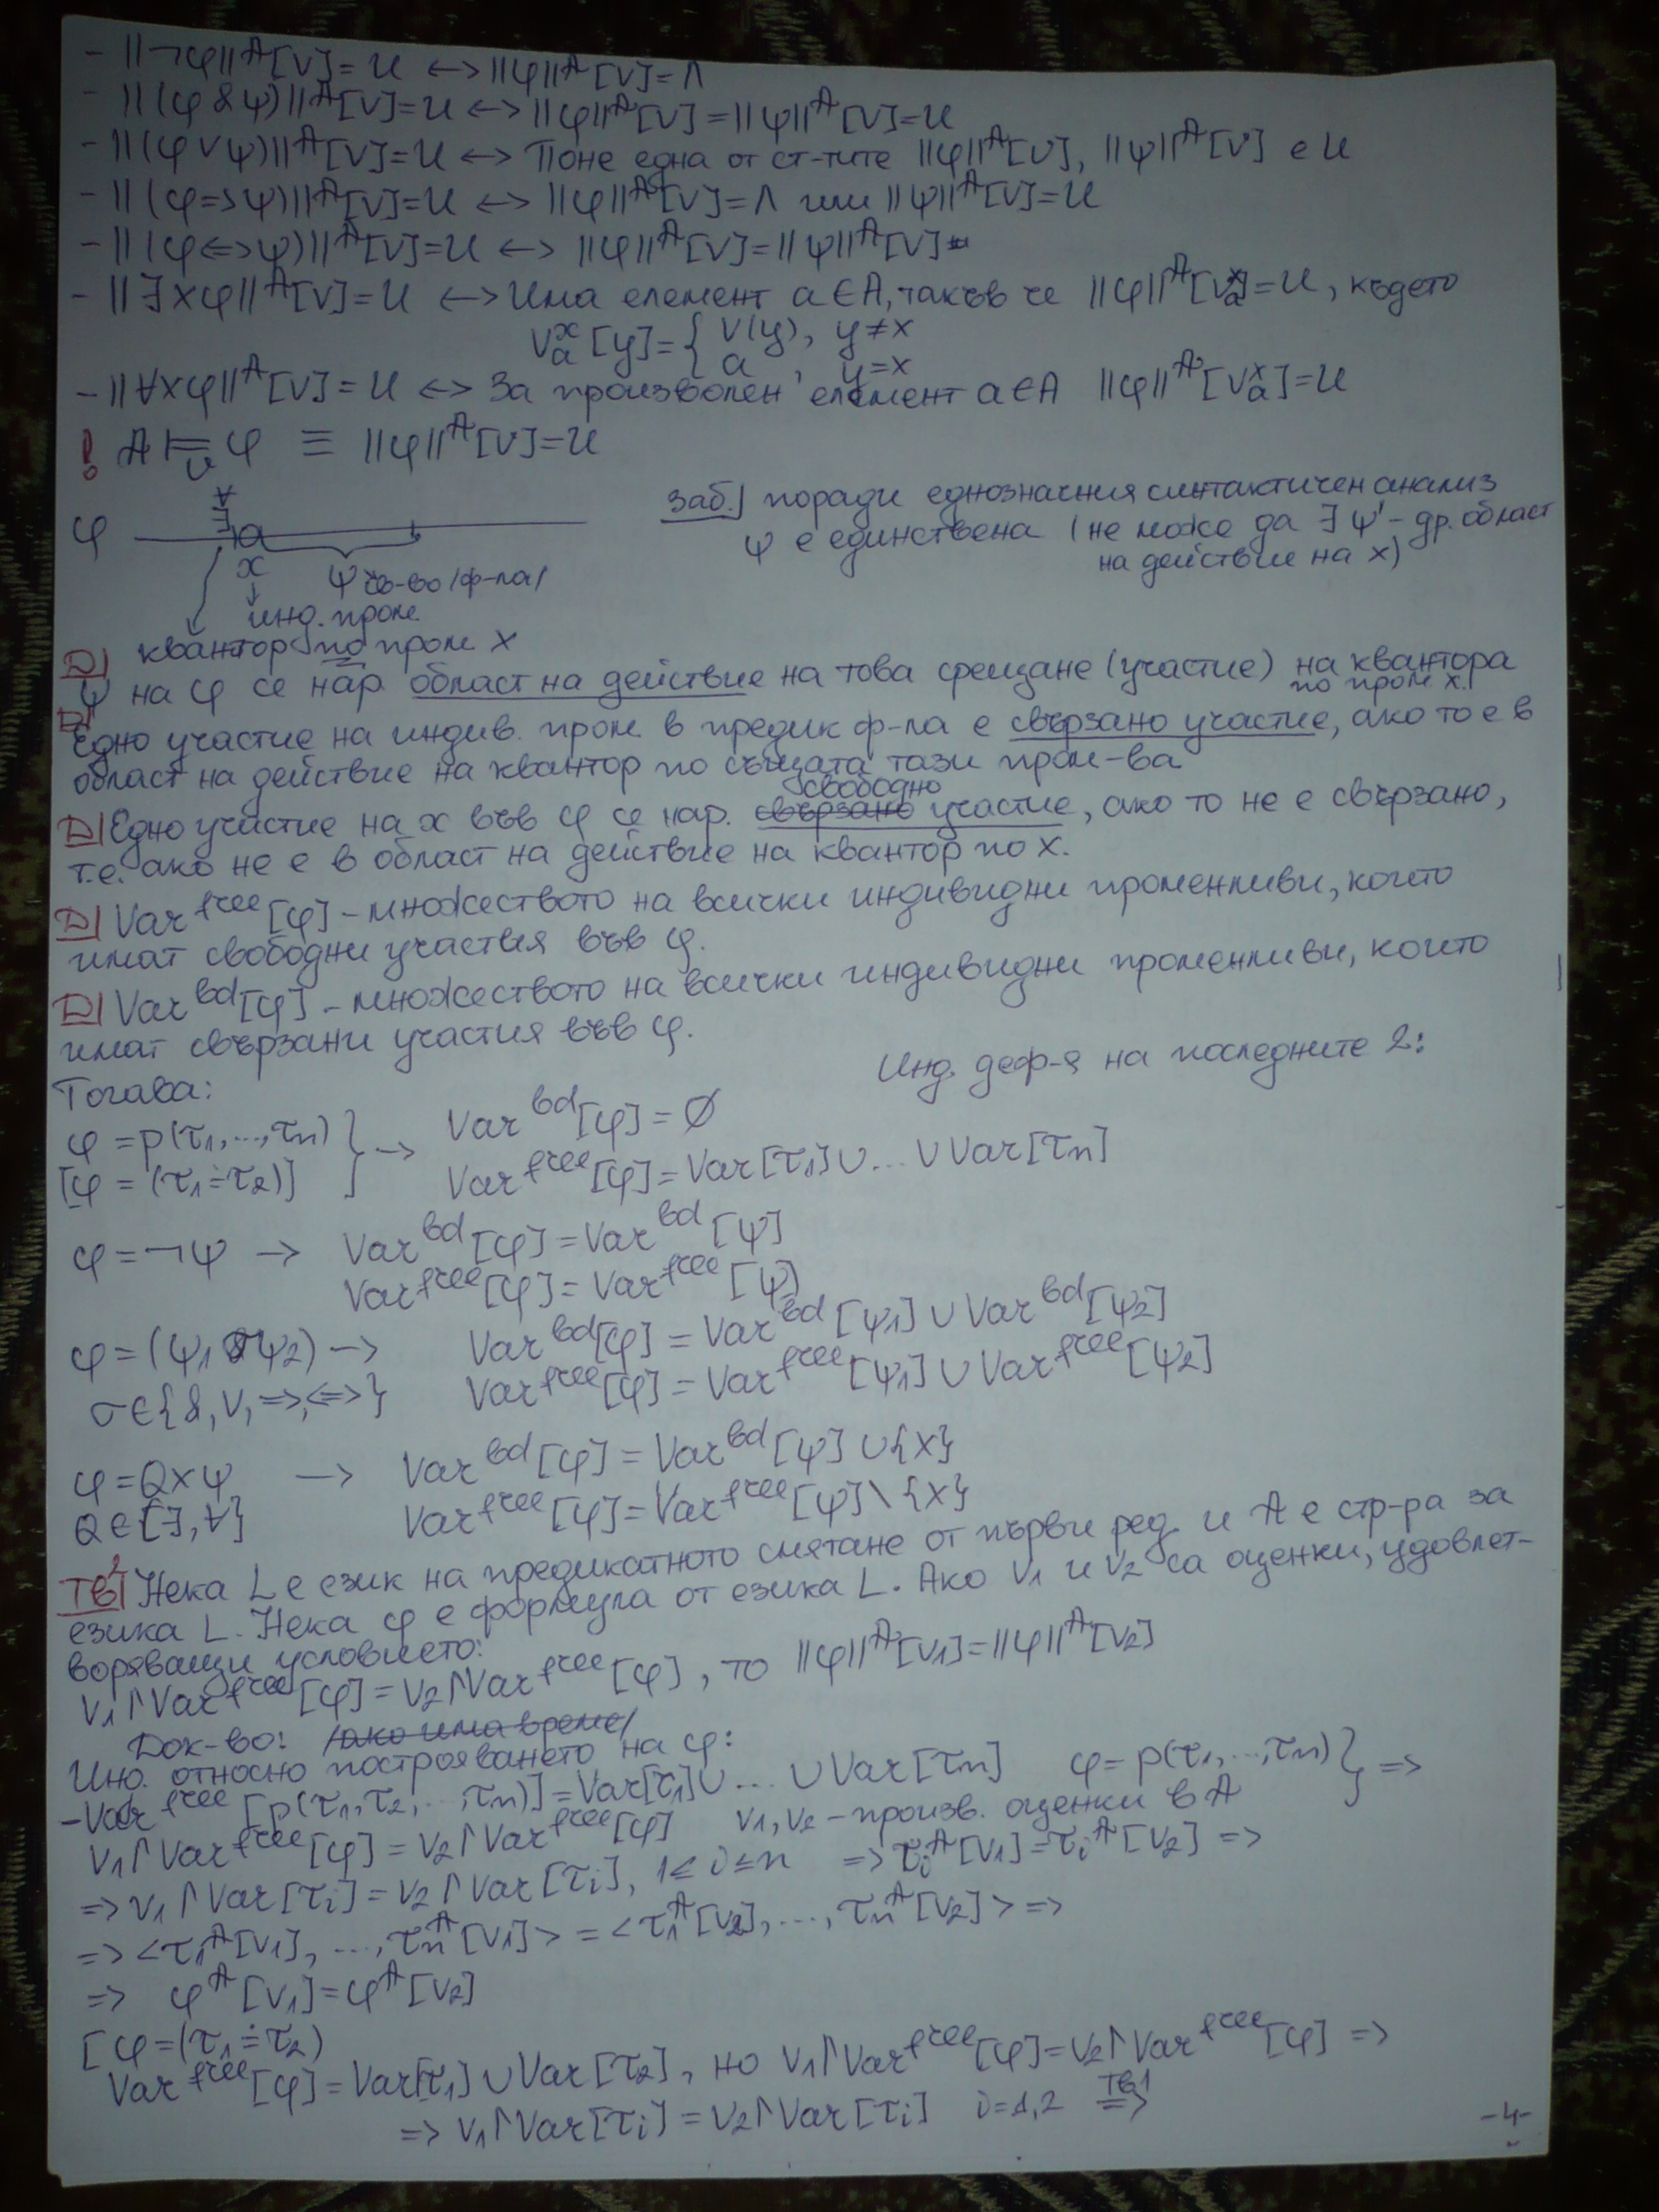 - ||¬φ||^𝔸[v]=И ↔ ||φ||^𝔸[v]=Л
- ||(φ & ψ)||^𝔸[v]=И ↔ ||φ||^𝔸[v]=||ψ||^𝔸[v]=И
- ||(φ ∨ ψ)||^𝔸[v]=И ↔ Поне една от ст-тите ||φ||^𝔸[v], ||ψ||^𝔸[v] е И
- ||(φ=>ψ)||^𝔸[v]=И ↔ ||φ||^𝔸[v]=Л или ||ψ||^𝔸[v]=И
- ||(φ<=>ψ)||^𝔸[v]=И ↔ ||φ||^𝔸[v]=||ψ||^𝔸[v]
- ||∃xφ||^𝔸[v]=И ↔ Има елемент a∈A, такъв че ||φ||^𝔸[v^x_a]=И, където
v^x_a[y]={ v(y), y≠x
a, y=x
- ||∀xφ||^𝔸[v]=И ↔ За произволен елемент a∈A ||φ||^𝔸[v^x_a]=И
! 𝔸 ⊨_v φ ≡ ||φ||^𝔸[v]=И
∀
φ ∃
x ψ св-во /ф-ла/
инд. пром.
квантор по пром x
заб.| поради еднозначния синтактичен анализ
ψ е единствена (не може да ∃ ψ' - др. област
на действие на x)
D| ψ на φ се нар. област на действие на това срещане (участие) на квантора
по пром x.
D| Едно участие на индив. пром. в предик ф-ла е свързано участие, ако то е в
област на действие на квантор по същата тази пром-ва
свободно
D| Едно участие на x във φ се нар. свързано участие, ако то не е свързано,
т.е. ако не е в област на действие на квантор по x.
D| Var^free[φ] - множеството на всички индивидни променливи, които
имат свободни участия във φ.
D| Var^bd[φ] - множеството на всички индивидни променливи, които
имат свързани участия във φ.
Инд. деф-я на последните 2:
Тогава:
φ = p(τ1,...,τn) } → Var^bd[φ] = ∅
[φ = (τ1≐τ2)] Var^free[φ] = Var[τ1]∪...∪Var[τn]
φ = ¬ψ → Var^bd[φ] = Var^bd[ψ]
Var^free[φ] = Var^free[ψ]
φ = (ψ1 σ ψ2) → Var^bd[φ] = Var^bd[ψ1] ∪ Var^bd[ψ2]
σ∈{&,∨,=>,<=>} Var^free[φ] = Var^free[ψ1] ∪ Var^free[ψ2]
φ = Qxψ → Var^bd[φ] = Var^bd[ψ] ∪{x}
Q∈{∃,∀} Var^free[φ] = Var^free[ψ]\{x}
Тв| Нека L е език на предикатното смятане от първи ред и 𝔸 е стр-ра за
езика L. Нека φ е формула от езика L. Ако v1 и v2 са оценки, удовлет-
воряващи условието:
v1↾Var^free[φ] = v2↾Var^free[φ], то ||φ||^𝔸[v1]=||φ||^𝔸[v2]
Док-во: /ако има време/
Инд. относно построяването на φ:
- Var^free[p(τ1,τ2,...,τn)] = Var[τ1]∪...∪Var[τn] φ = p(τ1,...,τn) } =>
v1↾Var^free[φ] = v2↾Var^free[φ] v1,v2 - произв. оценки в 𝔸
=> v1↾Var[τi] = v2↾Var[τi], 1≤i≤n => τi^𝔸[v1]=τi^𝔸[v2] =>
=> <τ1^𝔸[v1],...,τn^𝔸[v1]> = <τ1^𝔸[v2],...,τn^𝔸[v2]> =>
=> φ^𝔸[v1]=φ^𝔸[v2]
[φ=(τ1≐τ2)
Var^free[φ] = Var[τ1]∪Var[τ2], но v1↾Var^free[φ]=v2↾Var^free[φ] =>
=> v1↾Var[τi] = v2↾Var[τi] i=1,2 =Тв1=>
-4-